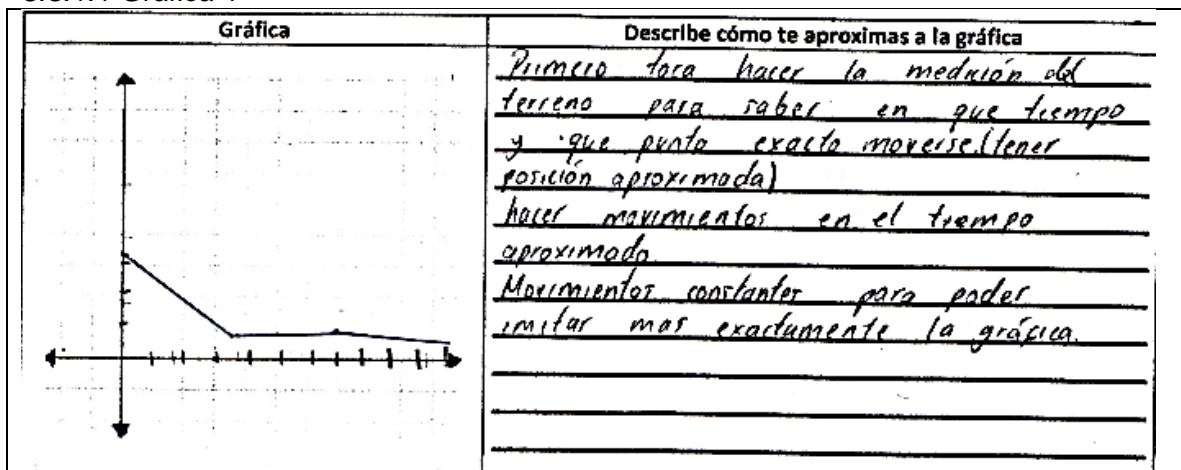 Gráfica
Describe cómo te aproximas a la gráfica
Primero toca hacer la medición del
terreno para saber en que tiempo
y que punto exacto moverse.(tener
posición aproximada)
hacer movimientos en el tiempo
aproximado
Movimientos constantes para poder
imitar mas exactamente la gráfica.